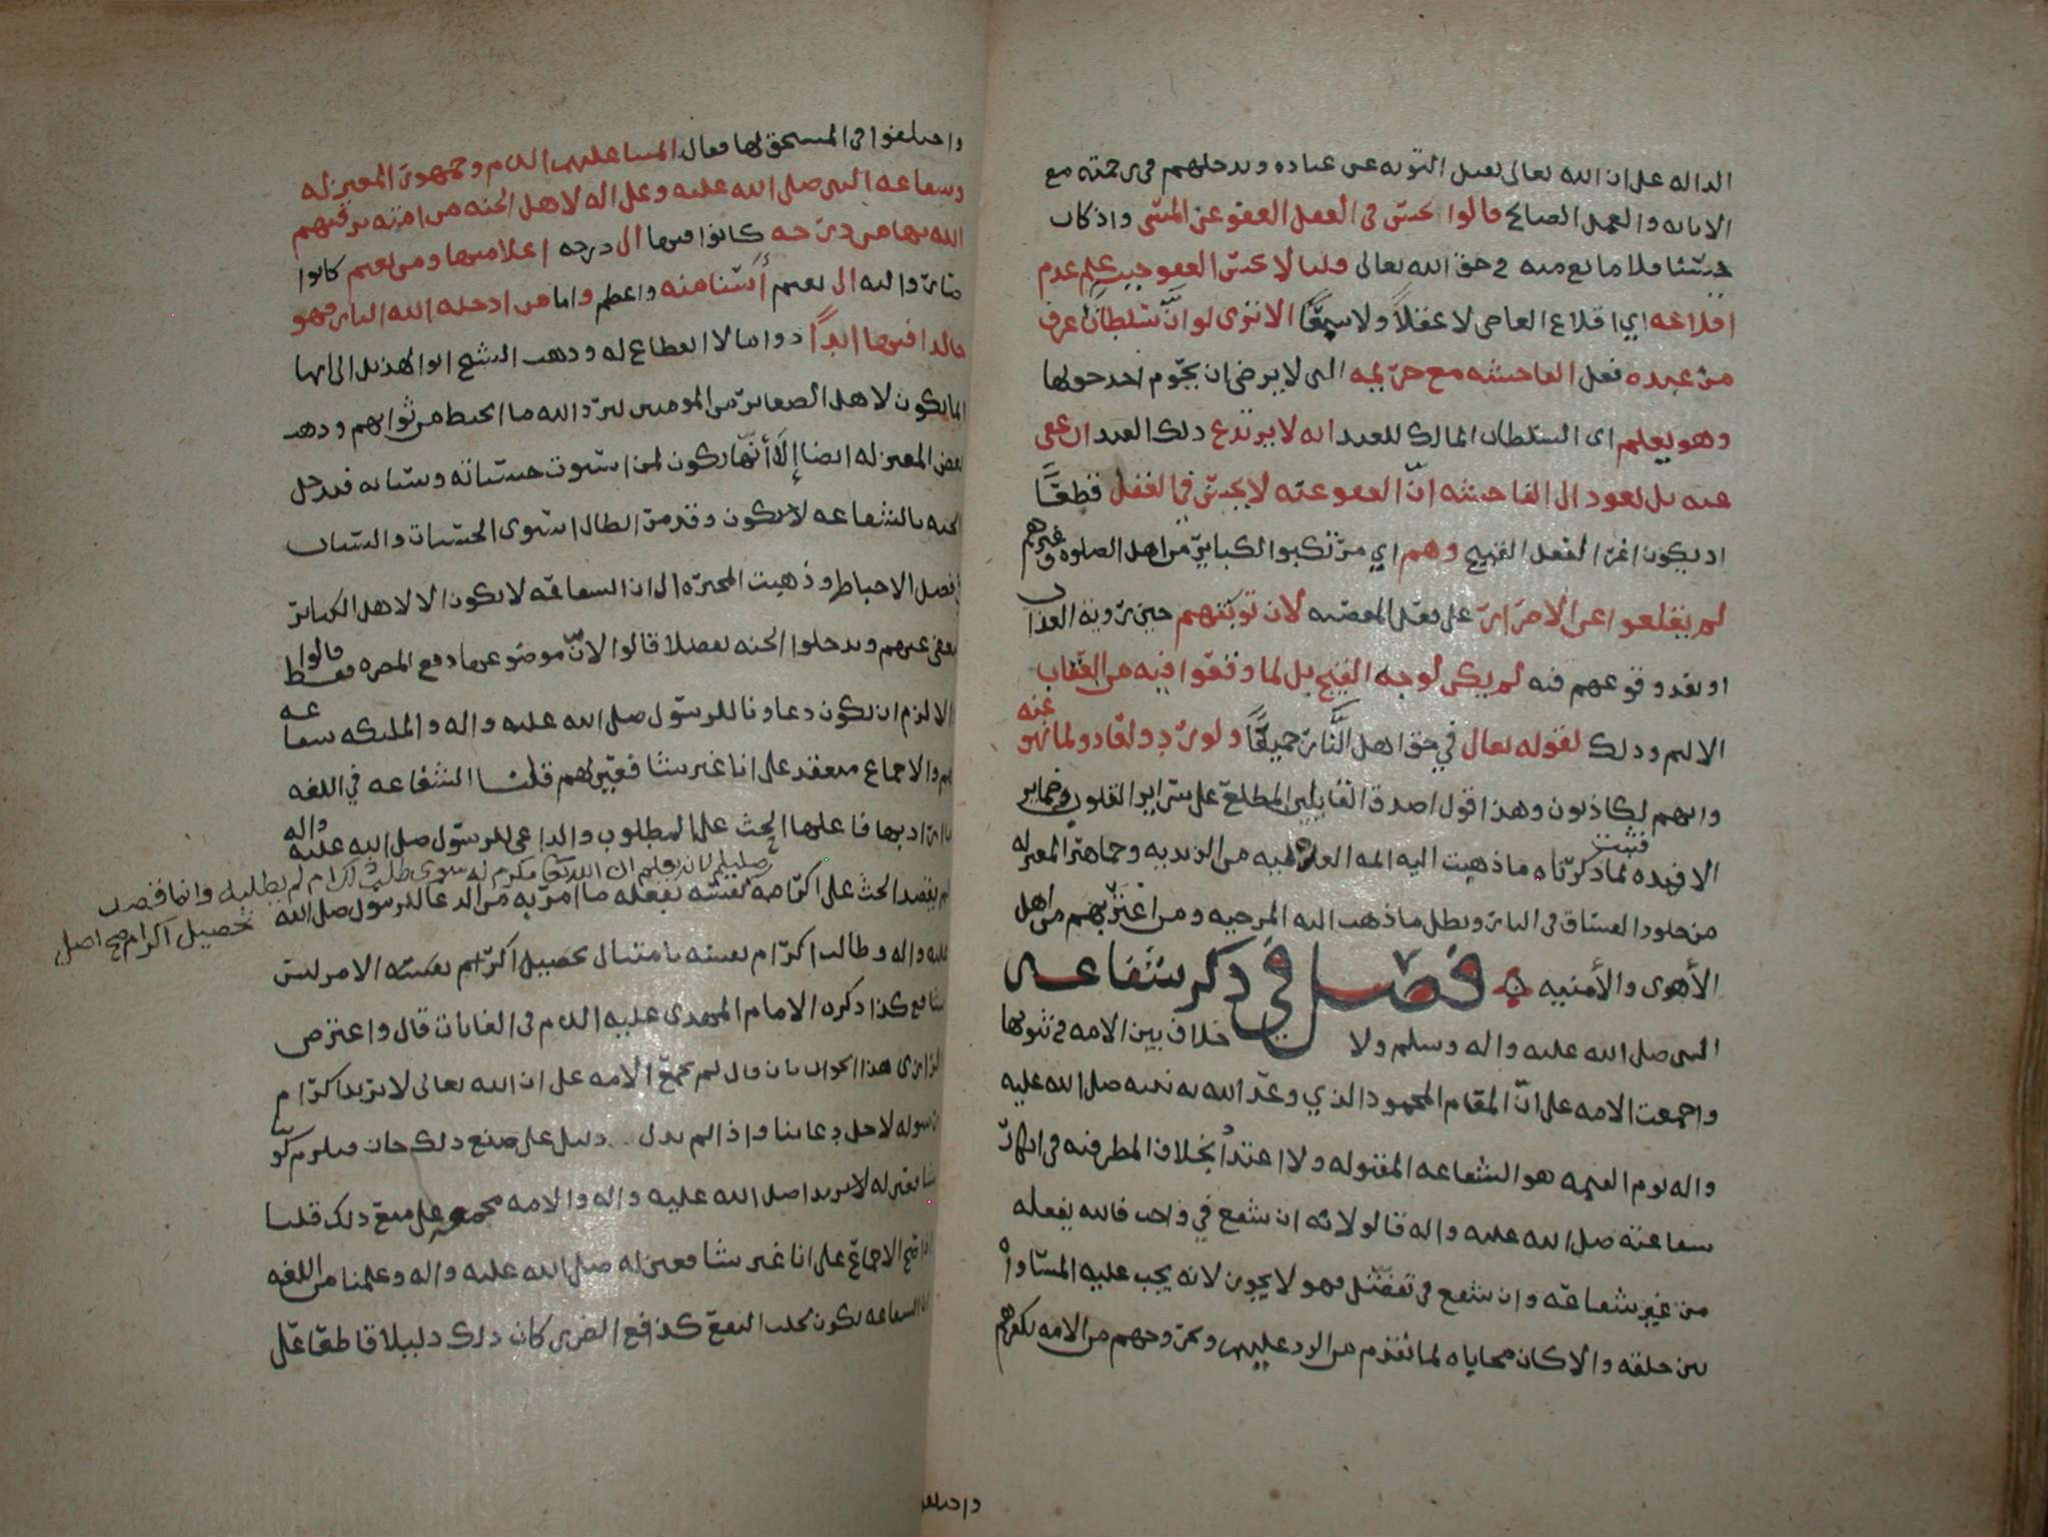 الداله على ان الله تعالى يقبل التوبه عن عباده ويدخلهم في رحمته مع
الانابه والعمل الصالح قالوا يحسن في العقل العفو عن المسي واذ كان
حسنا فلا مانع منه في حق الله تعالى قلنا لا يحسن العفو حيث علم عدم
اقلاعه اي اقلاع العاصي لا عقلاً ولا سمعًا الا ترى لو انّ سلطانًا عرف
من عبده فعل الفاحشه مع حريمه التي لا يرضى ان يحوم احد حولها
وهو يعلم اي السلطان المالك للعبد انه لا يرتدع ذلك العبد ان عفى
عنه بل يعود الى الفاحشه انّ العفو عنه لا يحسن في العقل قطعًا
اذ يكون اغرا لفعل القبيح وهم اي مرتكبوا الكباير من اهل الصلوه وغيرهم
لم يقلعوا عن الاصرار على فعل المعصيه لان توبتهم حين روية العذاب
او بعد وقوعهم فيه لم يكن لوجه القبيح بل لما وقعوا فيه من العقاب
الاليم وذلك لقوله تعالى في حق اهل النَّار جميعًا ولو ردوا لعادوا لما نهو عنه
وانهم لكاذبون وهذا قول اصدق القايلين المطلع على سراير القلوب وضماير
الافيده فثبت لما ذكرناه ما ذهبت اليه ايمه العلم من الزيديه وجماهير المعتزله
من خلود الفساق في النار وبطل ما ذهب اليه المرجيه ومن اغتر بهم من اهل
الأهوى والأمنيه فصل في ذكر شفاعة
النبي صلى الله عليه واله وسلم ولا خلاف بين الامه في ثبوتها
واجمعت الامه على انّ المقام المحمود الذي وعد الله به نبيه صلى الله عليه
واله يوم القيمه هو الشفاعه المقبوله ولا اعتدا بخلاف المطرفيه في انكار
شفاعته صلى الله عليه واله قالو لانه ان شفع في واجب فالله يفعله
من غير شفاعه وان شفع في تفضل فهو لا يجوز لانه يجب عليه المساواه
بين خلقه والا كان محاباه لما تقدم من الرد عليهم وخروجهم من الامه بكفرهم
واختلفوا
واختلفوا في المستحق لها فقال ايمتنا عليهم السلام وجمهور المعتزله
وشفاعه النبي صلى الله عليه وعلى اله لاهل الجنه من امته يرقيهم
الله بها من درجه كانوا فيها الى درجه اعلا منها ومن نعيم كانوا
فيه الى نعيم أسنا منه واعظم واما من ادخله الله النار فهو
خالد فيها ابدًا دواما لا انقطاع له وذهب الشيخ ابو الهذيل الى انها
انما يكون لاهل الصغاير من المومنين ليرد الله ما انحبط من ثوابهم وذهب
بعض المعتزله ايضا إلا أنّها يكون لمن استوت حسناته وسياته فيدخل
الجنه بالشفاعه لا يكون وقد مر ابطال استوى الحسنات والسيات
في فصل الاحباط وذهبت المجبره الى ان الشفاعه لا يكون الا لاهل الكباير
يعفى عنهم ويدخلوا الجنه تفضلا قالوا لانها موضوعه لدفع المضره فقط قالوا
والا لزم ان يكون دعاونا للرسول صلى الله عليه واله والمليكه شفاعه
لهم والاجماع منعقد على انا غير شافعين لهم قلنا الشفاعه في اللغه
ما اراد بها فاعلها الحث على المطلوب والداعي للرسول صلى الله عليه واله
لم يقصد الحث على اكرامه نفسه بفعله ما امر به من الدعا للرسول صلى الله
صلعم لانه يعلم ان الله تعالى مكرم له سوى طلب الاكرام ام لم يطلبه وانما قصد
تحصيل اكرام صح اصل
عليه واله وطالب اكرام نفسه بامتثال تحصيل اكرام نفسه الامر ليس
بشافع كذا ذكره الامام المهدي عليه السلام في الغايات قال واعترض
الرازي هذا الجواب بان قال لم تجمع الامه على ان الله تعالى لا يزيد اكرام
رسوله لاجل دعاينا واذا لم يدل دليل على منع ذلك جاز فيلزم كوننا
شافعين له لا يريد صلى الله عليه واله والامه مجمعه على منع ذلك قلنا
اذا صح الاجماع على انا غير شافعين له صلى الله عليه واله وعلمنا من اللغه
ان الشفاعه يكون لجلب النفع كدفع الضرر كان ذلك دليلا قاطعا على